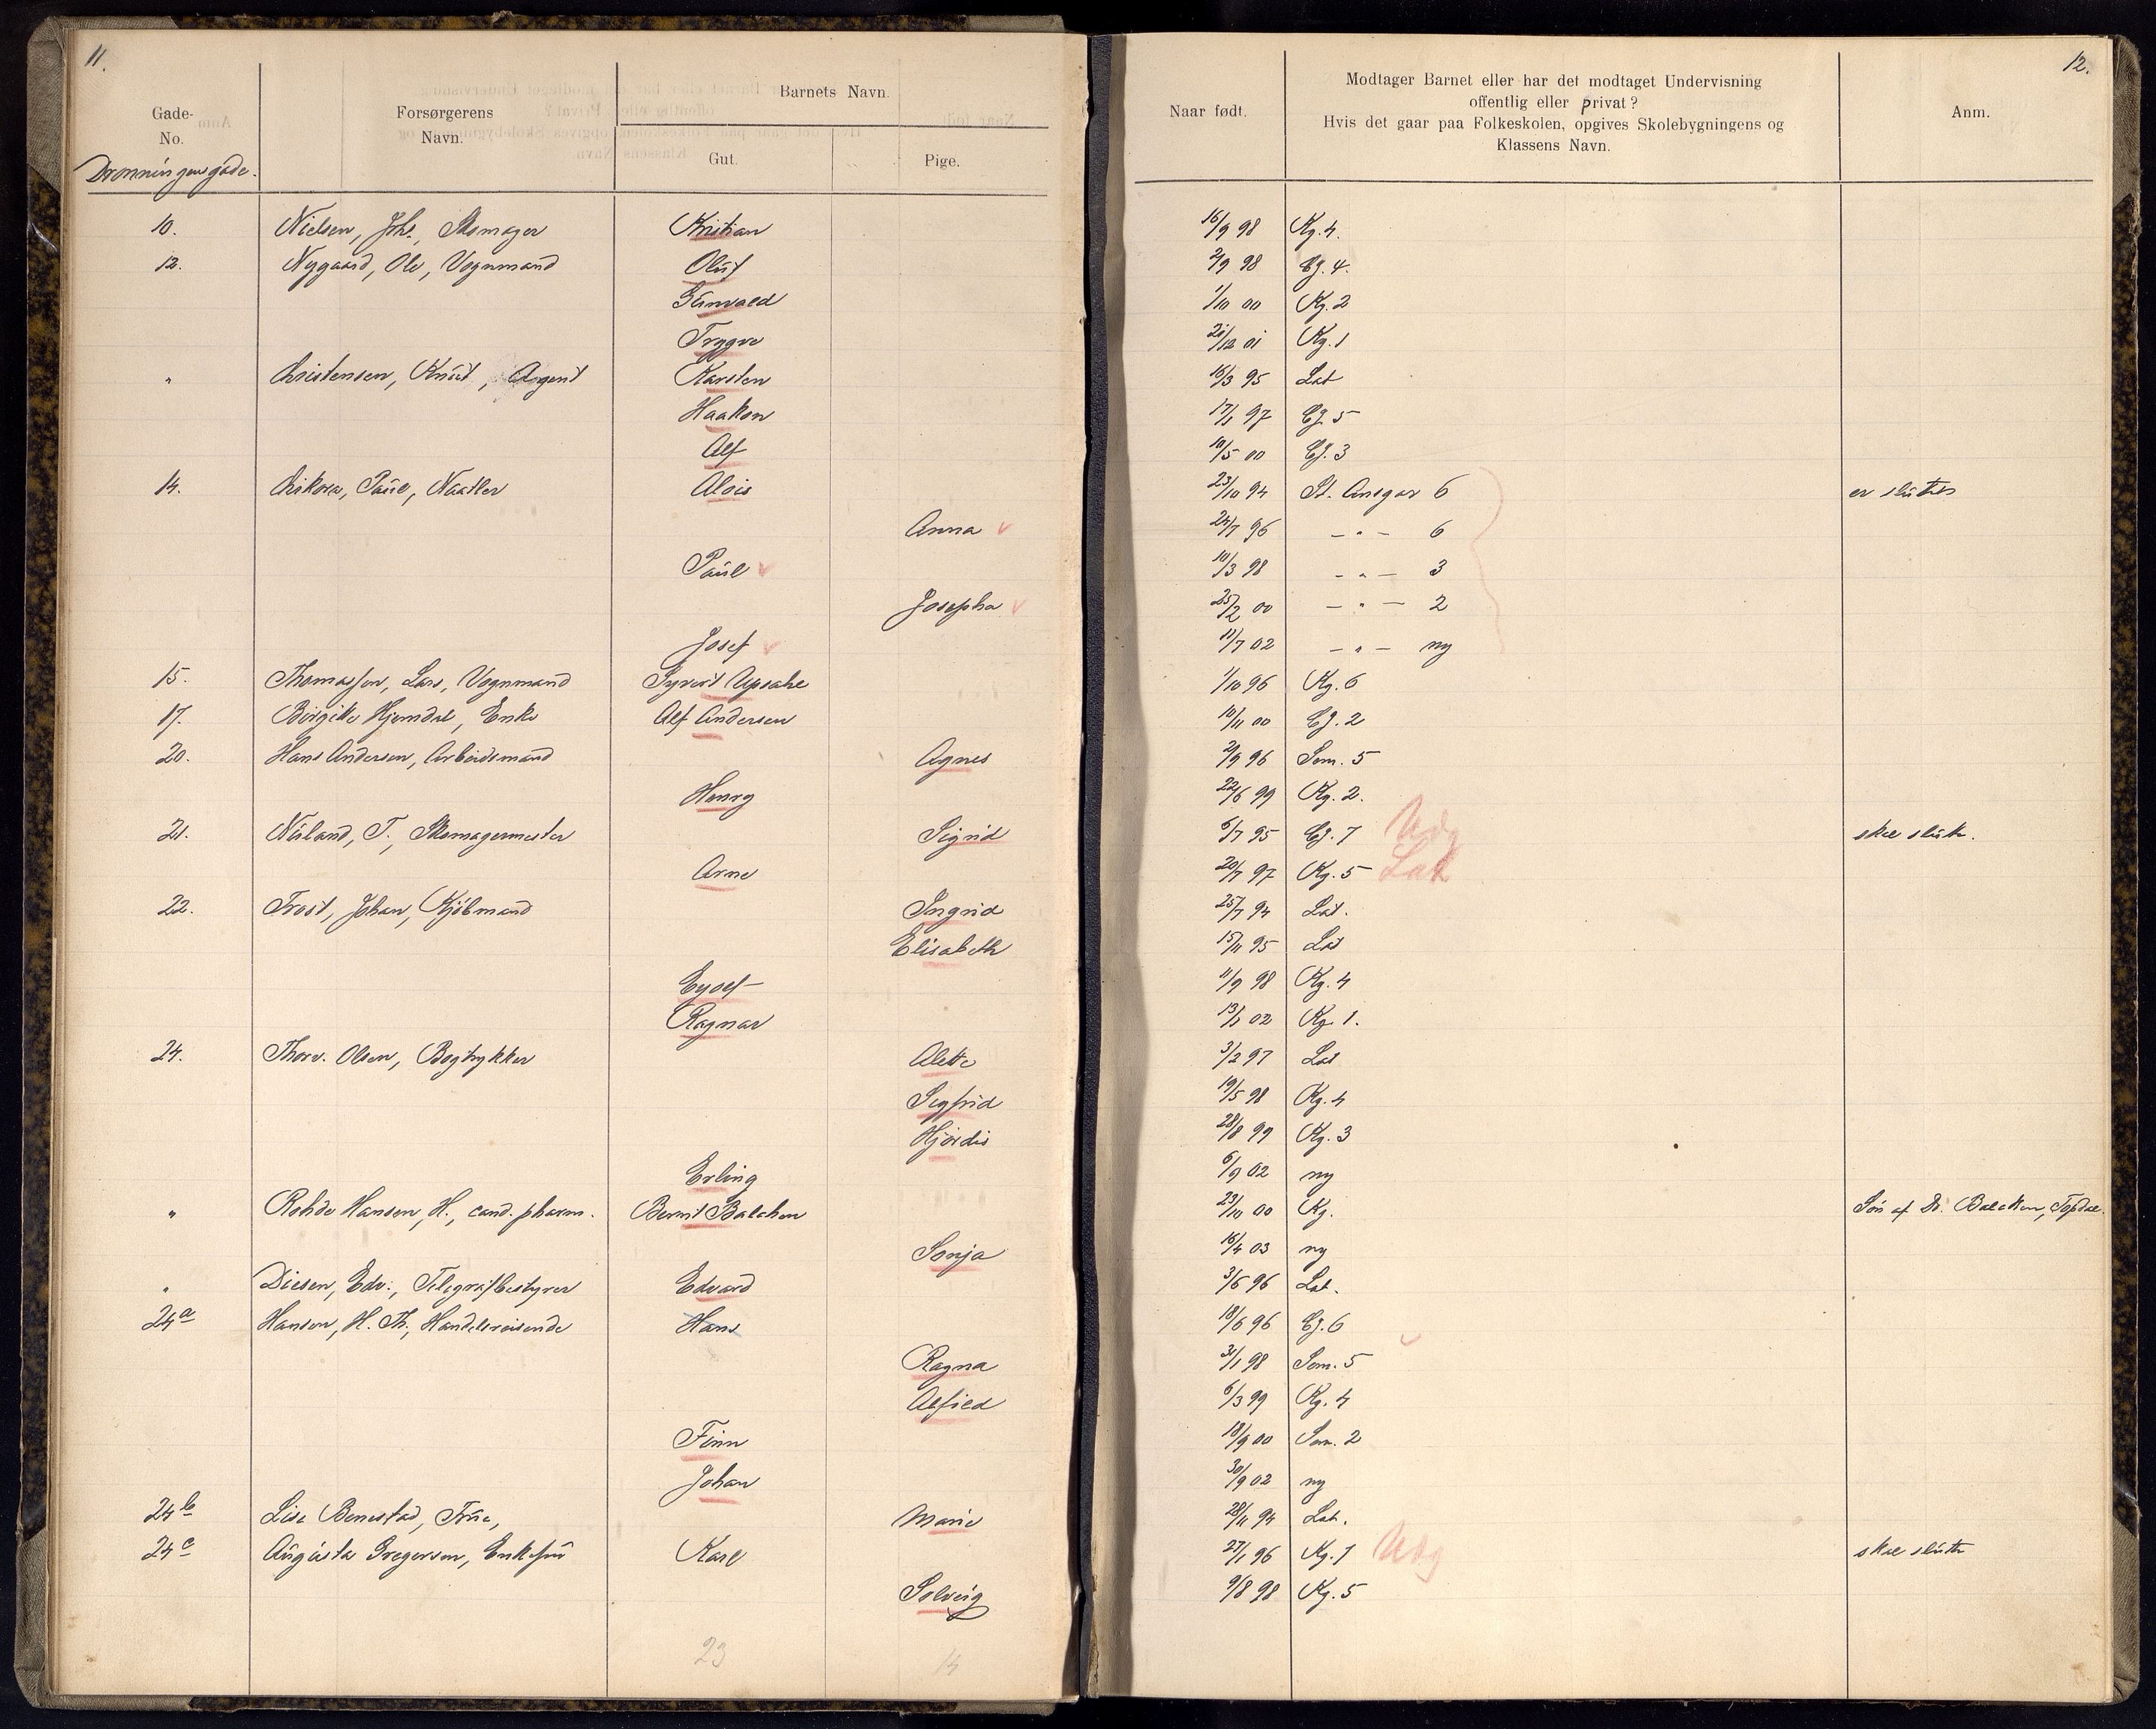 11.
12.
Gade-
No.
Forsørgerens
Navn.
Barnets Navn.
Gut.
Pige.
Naar født.
Modtager Barnet eller har det modtaget Undervisning
offentlig eller privat?
Hvis det gaar paa Folkeskolen, opgives Skolebygningens og
Klassens Navn.
Anm.
Dronningensgade.
10. Nielsen, Johs., Skomager Kristian 16/9 98 Kg. 4.
12. Nygaard, Ole, Vognmand Oluf 2/9 98 Eg. 4.
Gunvald 1/10 00 Kg. 2
Trygve 21/12 01 Kg. 1
" Christensen, Knut, Agent Karsten 16/3 95 Lat
Haakon 17/1 97 Eg. 5
Alf 10/5 00 Eg. 3
14. Paul, Alois 23/10 94 St. Ansgar 6 er sluttet
Anna 24/7 96 – " – 6
Paul 10/3 98 – " – 3
Josepha 25/2 00 – " – 2
Josef 11/7 02 – " – ny
15. Thomassen, Lars, Vognmand Syvert Upsahl 1/10 96 Kg. 6
17. Birgitte Hjemdal, Enke Alf Andersen 10/11 00 Eg. 2
20. Hans Andersen, Arbeidsmand Agnes 2/9 96 Sem. 5
Henry 22/6 99 Kg. 2.
21. Nuland, T., Skomagermester Sigrid 6/7 95 Eg. 7 Udg skal slutte.
Arne 20/7 97 Kg. 5 Lat
22. Frost, Johan, Kjøbmand Ingrid 25/7 94 Lat.
Elisabeth 15/11 95 Lat
Eyolf 11/9 98 Kg. 4
Ragnar 13/1 02 Kg. 1.
24. Thorv. Olsen, Bogtrykker Alette 3/2 97 Lat
Sigfrid 19/5 98 Kg. 4
Hjørdis 28/8 99 Kg. 3
Erling 6/9 02 ny
" Rohde Hansen, H., cand. pharm. Bernt Balchen 23/10 00 Kg. Søn af Dr. Balchen, Topdal.
Sonja 16/4 03 ny
" Diesen, Edv., Telegrafbestyrer Edvard 3/6 96 Lat.
24a Hansen, H. Th., Handelsreisende Hans 18/6 96 Eg. 6
Ragna 31/1 98 Sem. 5
Alfild 6/3 99 Kg. 4
Finn 18/9 00 Sem. 2
Johan 30/9 02 ny
24b Lise Benestad, Frue, Marie 28/11 94 Lat.
24c Augusta Gregersen, Enkefru Karl 27/1 96 Kg. 7 Udg skal slutte
Solveig 9/8 98 Kg. 5
23 14